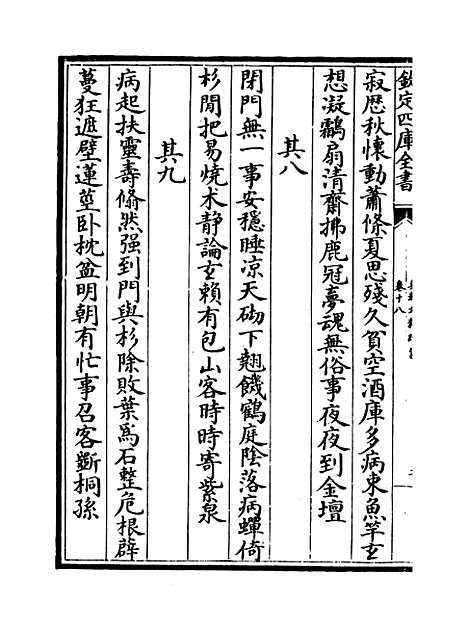 欽定四庫全書
卷十八
寂歴秋懐動蕭條夏思殘久貧空酒庫多病束魚竿玄
想凝鸘扇清齋拂鹿冠夢魂無俗事夜夜到金壇
其八
閉門無一事安穩睡凉天砌下翹饑鶴庭陰落病蟬倚
杉閒把易燒术静論玄賴有包山客時時寄紫泉
其九
病起扶靈壽翛然强到門與杉除敗葉為石整危根薜
蔓狂遮壁蓮莖卧枕盆明朝有忙事召客斵桐孫